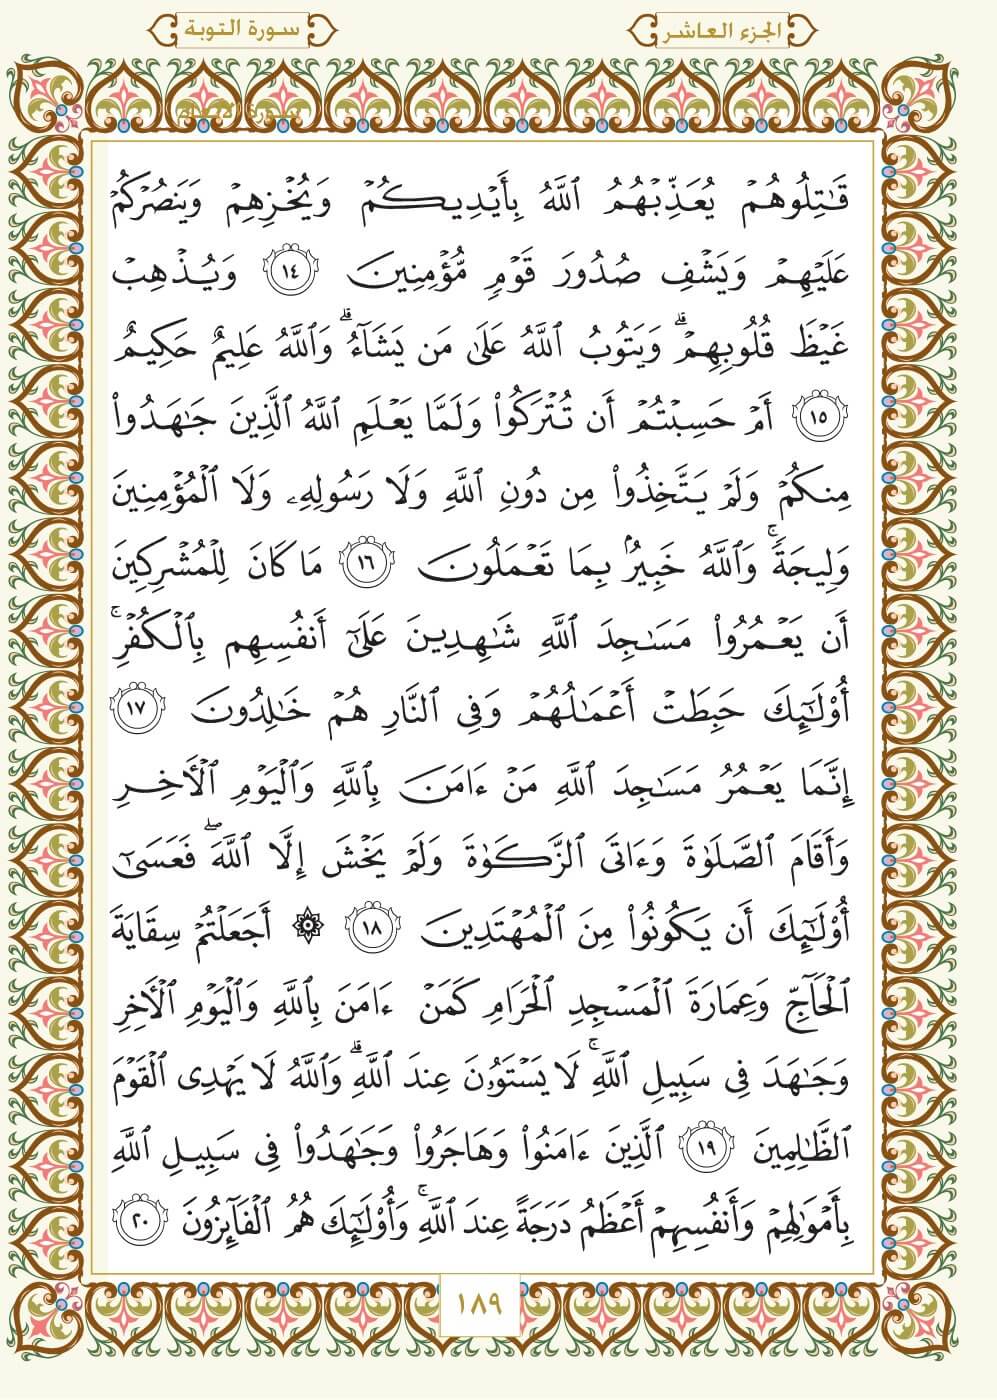 الجزء العاشر
سورة التوبة
قَٰتِلُوهُمْ يُعَذِّبْهُمُ ٱللَّهُ بِأَيْدِيكُمْ وَيُخْزِهِمْ وَيَنصُرْكُمْ
عَلَيْهِمْ وَيَشْفِ صُدُورَ قَوْمٍ مُّؤْمِنِينَ ١٤ وَيُذْهِبْ
غَيْظَ قُلُوبِهِمْ ۗ وَيَتُوبُ ٱللَّهُ عَلَىٰ مَن يَشَآءُ ۗ وَٱللَّهُ عَلِيمٌ حَكِيمٌ
١٥ أَمْ حَسِبْتُمْ أَن تُتْرَكُوا۟ وَلَمَّا يَعْلَمِ ٱللَّهُ ٱلَّذِينَ جَٰهَدُوا۟
مِنكُمْ وَلَمْ يَتَّخِذُوا۟ مِن دُونِ ٱللَّهِ وَلَا رَسُولِهِۦ وَلَا ٱلْمُؤْمِنِينَ
وَلِيجَةً ۚ وَٱللَّهُ خَبِيرٌۢ بِمَا تَعْمَلُونَ ١٦ مَا كَانَ لِلْمُشْرِكِينَ
أَن يَعْمُرُوا۟ مَسَٰجِدَ ٱللَّهِ شَٰهِدِينَ عَلَىٰٓ أَنفُسِهِم بِٱلْكُفْرِ ۚ
أُو۟لَٰٓئِكَ حَبِطَتْ أَعْمَٰلُهُمْ وَفِى ٱلنَّارِ هُمْ خَٰلِدُونَ ١٧
إِنَّمَا يَعْمُرُ مَسَٰجِدَ ٱللَّهِ مَنْ ءَامَنَ بِٱللَّهِ وَٱلْيَوْمِ ٱلْأَخِرِ
وَأَقَامَ ٱلصَّلَوٰةَ وَءَاتَى ٱلزَّكَوٰةَ وَلَمْ يَخْشَ إِلَّا ٱللَّهَ ۖ فَعَسَىٰٓ
أُو۟لَٰٓئِكَ أَن يَكُونُوا۟ مِنَ ٱلْمُهْتَدِينَ ١٨ ۞ أَجَعَلْتُمْ سِقَايَةَ
ٱلْحَآجِّ وَعِمَارَةَ ٱلْمَسْجِدِ ٱلْحَرَامِ كَمَنْ ءَامَنَ بِٱللَّهِ وَٱلْيَوْمِ ٱلْأَخِرِ
وَجَٰهَدَ فِى سَبِيلِ ٱللَّهِ ۚ لَا يَسْتَوُۥنَ عِندَ ٱللَّهِ ۗ وَٱللَّهُ لَا يَهْدِى ٱلْقَوْمَ
ٱلظَّٰلِمِينَ ١٩ ٱلَّذِينَ ءَامَنُوا۟ وَهَاجَرُوا۟ وَجَٰهَدُوا۟ فِى سَبِيلِ ٱللَّهِ
بِأَمْوَٰلِهِمْ وَأَنفُسِهِمْ أَعْظَمُ دَرَجَةً عِندَ ٱللَّهِ ۚ وَأُو۟لَٰٓئِكَ هُمُ ٱلْفَآئِزُونَ ٢٠
١٨٩